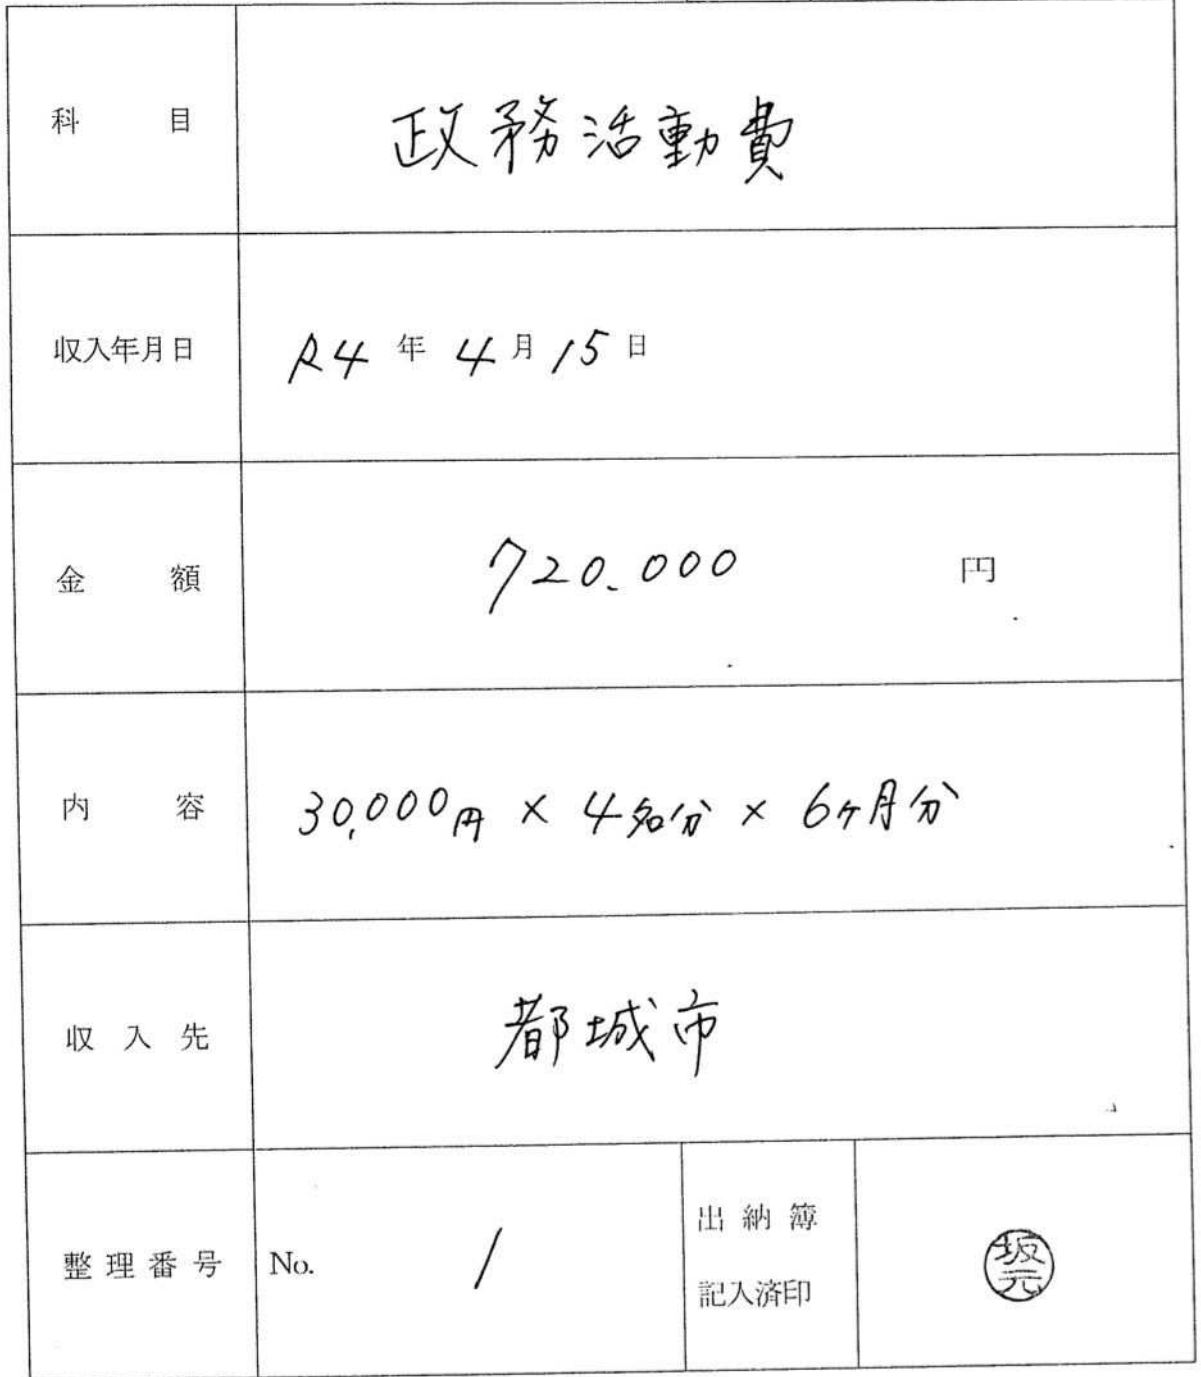 科目 政務活動費
収入年月日 R4年4月15日
金額 720.000 円
内容 30,000円 × 4名分 × 6ヶ月分
収入先 都城市
整理番号 No. 1 出納簿
記入済印 坂元